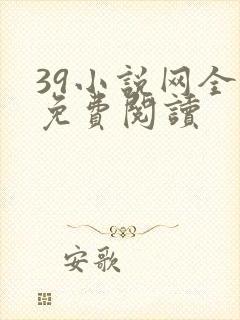 39小説网全
免費閱讀
安歌